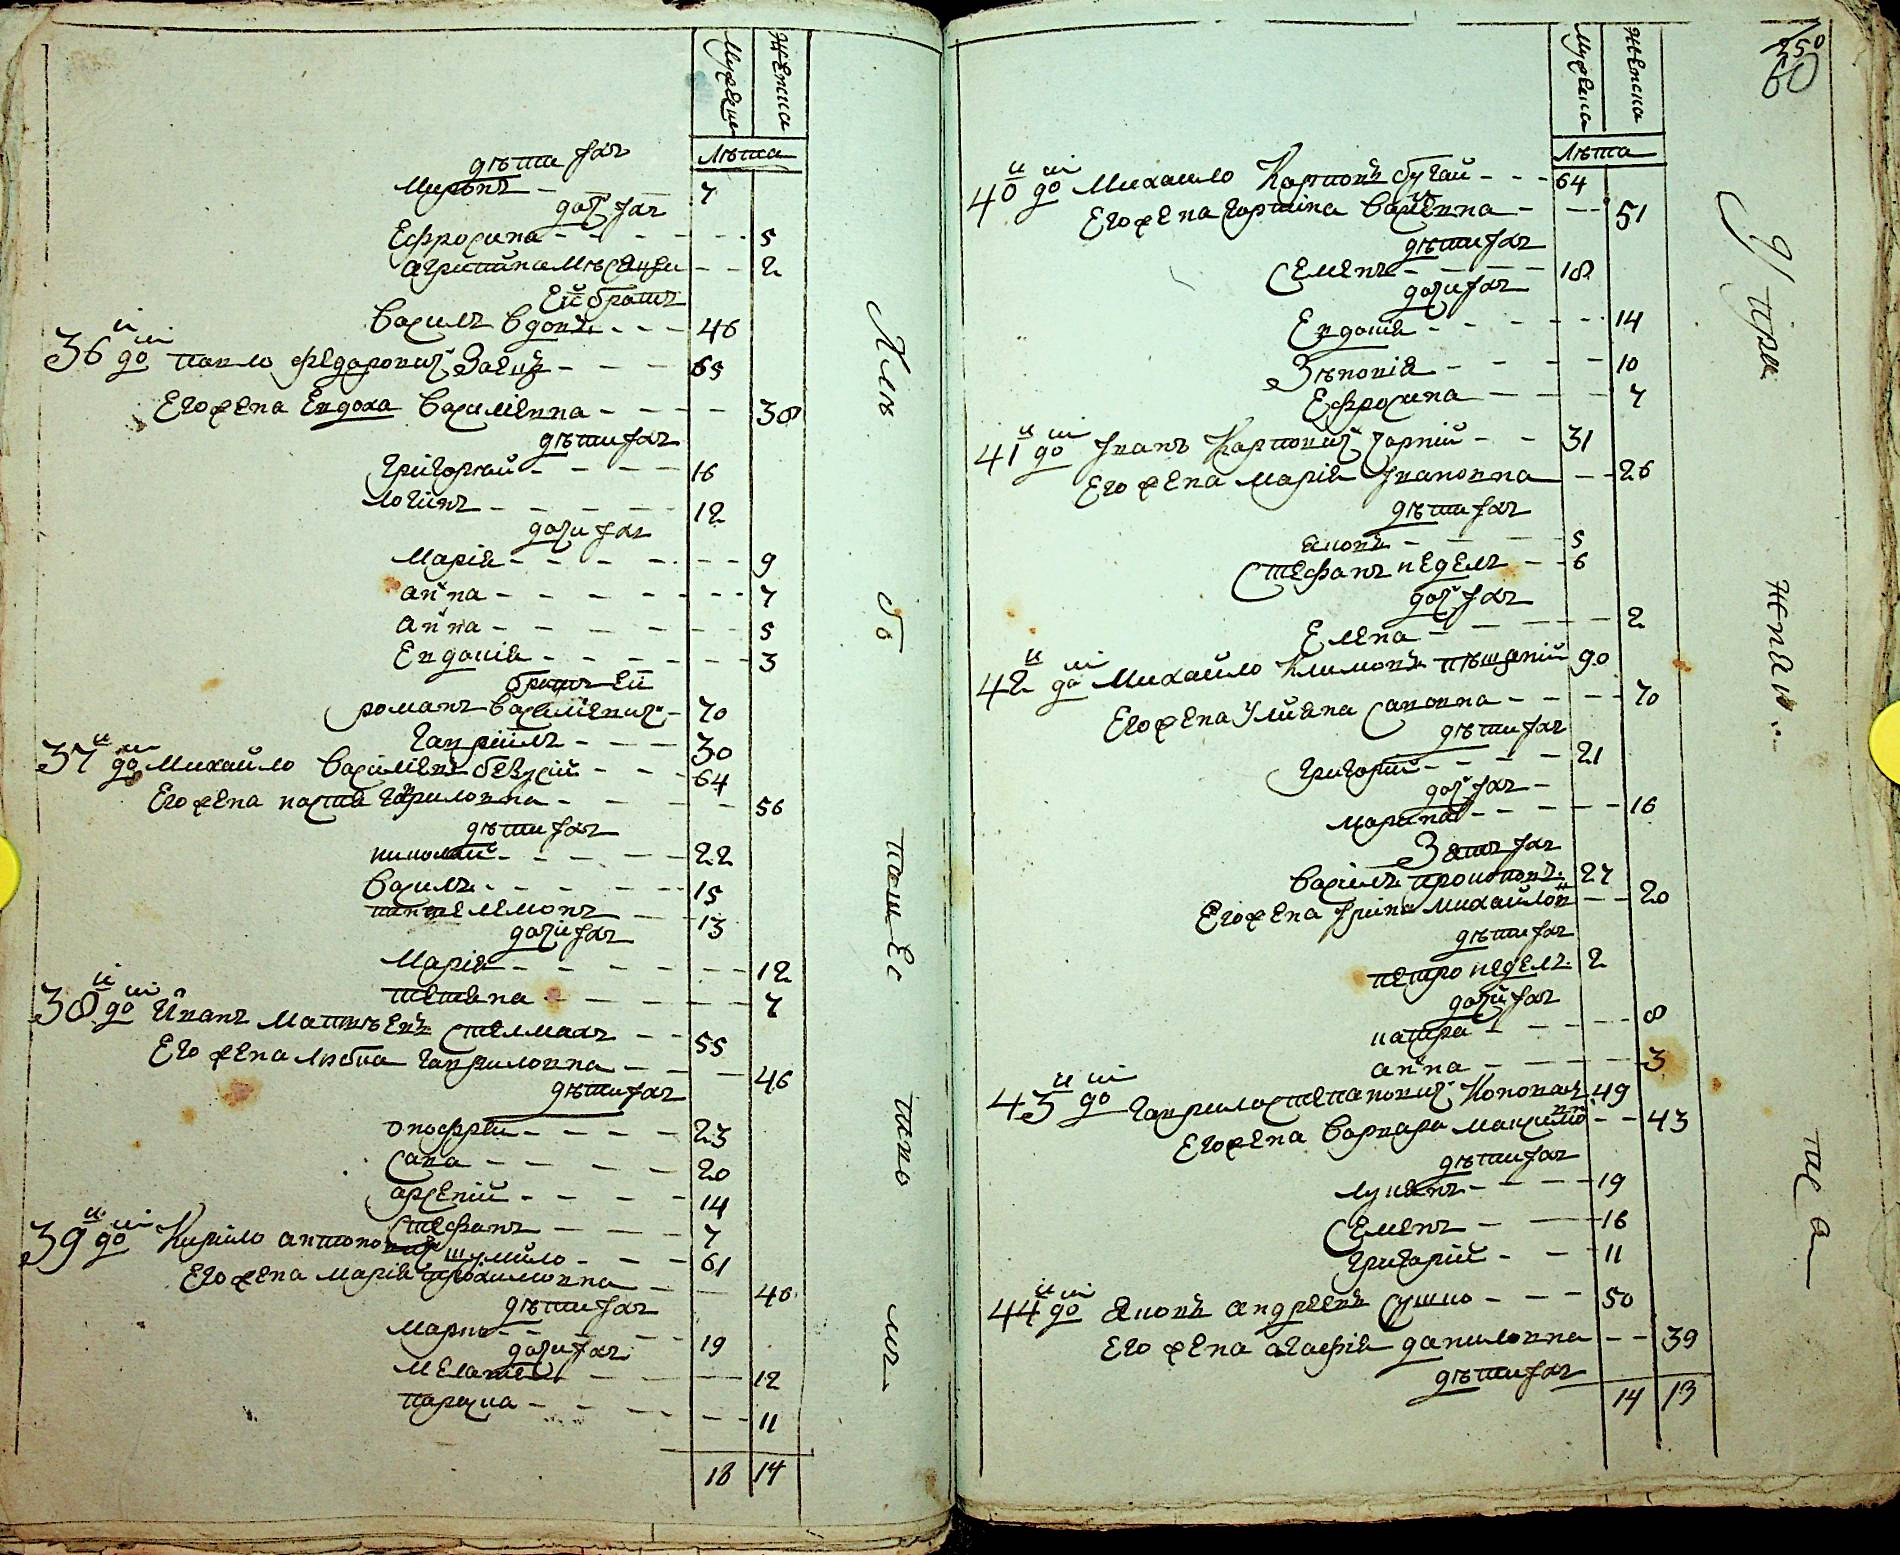 Мужеска Женска
Лѣта
дѣти Jхъ
Миронъ - 7
дочи Jхъ
Ефросина - - - 5
агрипина мѣсяцей - - 2
Ей братъ
Василъ Вдовъ - - - 46
36й до Павло Федоровичъ Заецъ - - - 65
Его жена Евдоха Василіевна - - - 38
дѣти Jхъ
григорий - - - 16
логинъ - - - 12
дочи Jхъ
Марія - - - 9
анна - - - 7
анна - - - 5
Евдокія - - - 3
братъ Ей
романъ Василіевичъ - 70
Гавріилъ - - - 30
37й до Михайло Василіевъ - - - 64
Его жена настя Гаврыловна - - - 56
дѣти Jхъ
николай - - - 22
Василъ - - - 15
пантелемонъ - - 13
дочи Jхъ
Марія - - - 12
тетяна - - - 7
38й до Йванъ Матвѣевъ Стелмахъ - - 55
Его жена Любка Гавриловна - - - 46
дѣти Jхъ
онофрѣй - - - 23
Сава - - - 20
арсеній - - - 14
Стефанъ - - - 7
39й до Кирило антоновичъ шумило - - - 61
Его жена марія трохимовна - - 40
дѣти Jхъ
марко - - - 19
дочи Jхъ
Меланія - - - 12
параска - - - 11
18 14
Мужеска Женска
250
60
Лѣта
40й до Михайло Карповъ бугай - - - 64
Его жена Василіевна - - - 51
дѣти Jхъ
Семенъ - - - 18
дочи Jхъ
Евдокія - - - 14
Зѣновія - - - 10
Ефросина - - - 7
41й до Jванъ Карповичъ чорній - - 31
Его жена марія Jвановна - - 26
дѣти Jхъ
яковъ - - - 5
Стефанъ неделъ - - 6
дочъ Jхъ
Елена - - - 2
42й до Михайло Климовъ 90
Его жена Улияна Савовна - - - 70
дѣти Jхъ
григорий - - - 21
дочъ Jхъ -
марина - - - 16
Зятъ Jхъ
Василъ прокоповъ - 27
Его жена Jрина Михайлов - - 20
дѣти Jхъ
петро неделъ 2
дочи Jхъ
- - - 8
анна - - - 3
43й до Гаврило степановичъ Коновал 49
Его жена Варвара - - 43
дѣти Jхъ
лукянъ - - - 19
Семенъ - - 16
григорий - - - 11
44й до яковъ андреевъ Сушко - - - 50
Его жена агафія даниловна - - 39
дѣти Jхъ
14 13